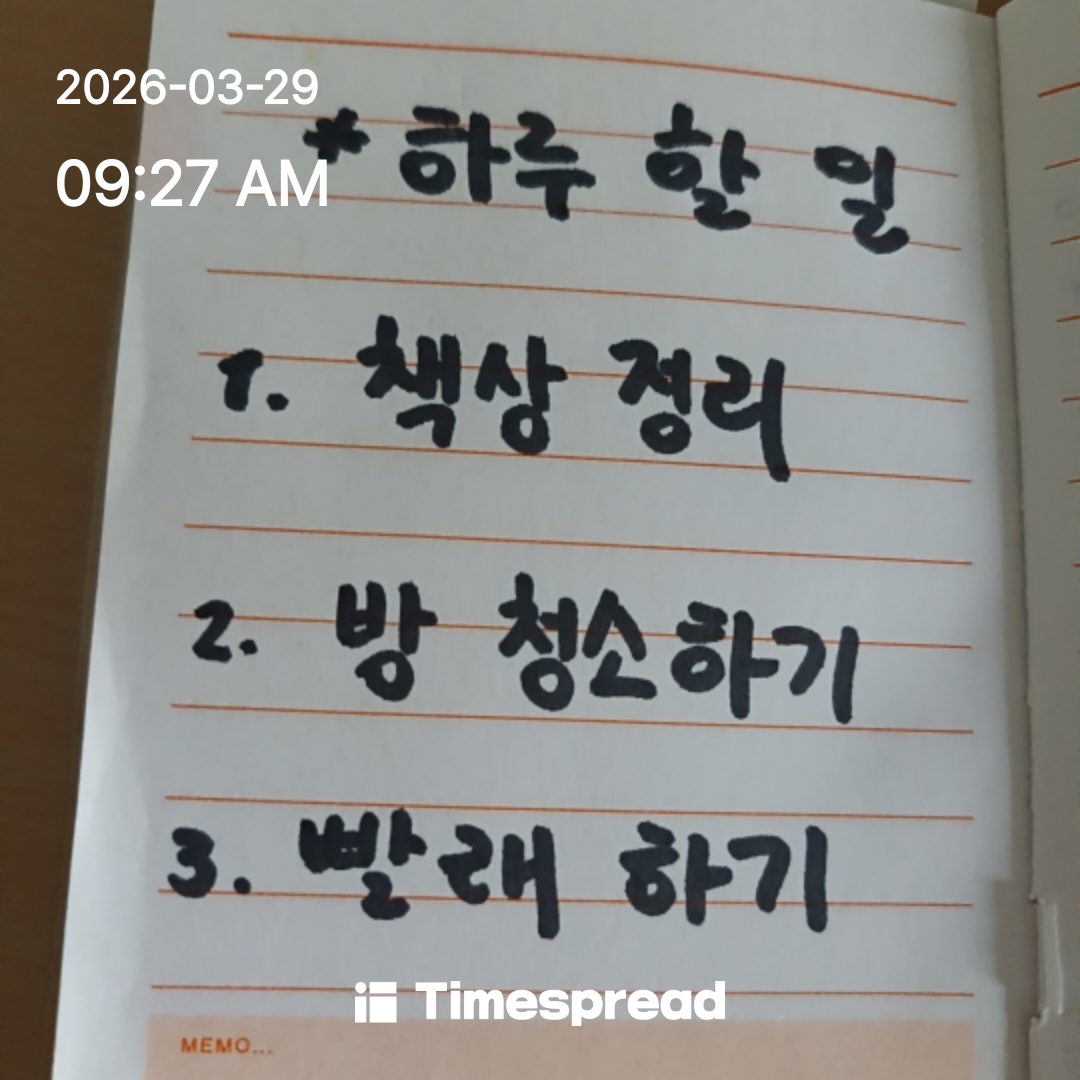 2026-03-29
09:27 AM
* 하루 할 일
1. 책상 정리
2. 방 청소하기
3. 빨래 하기
Timespread
MEMO...